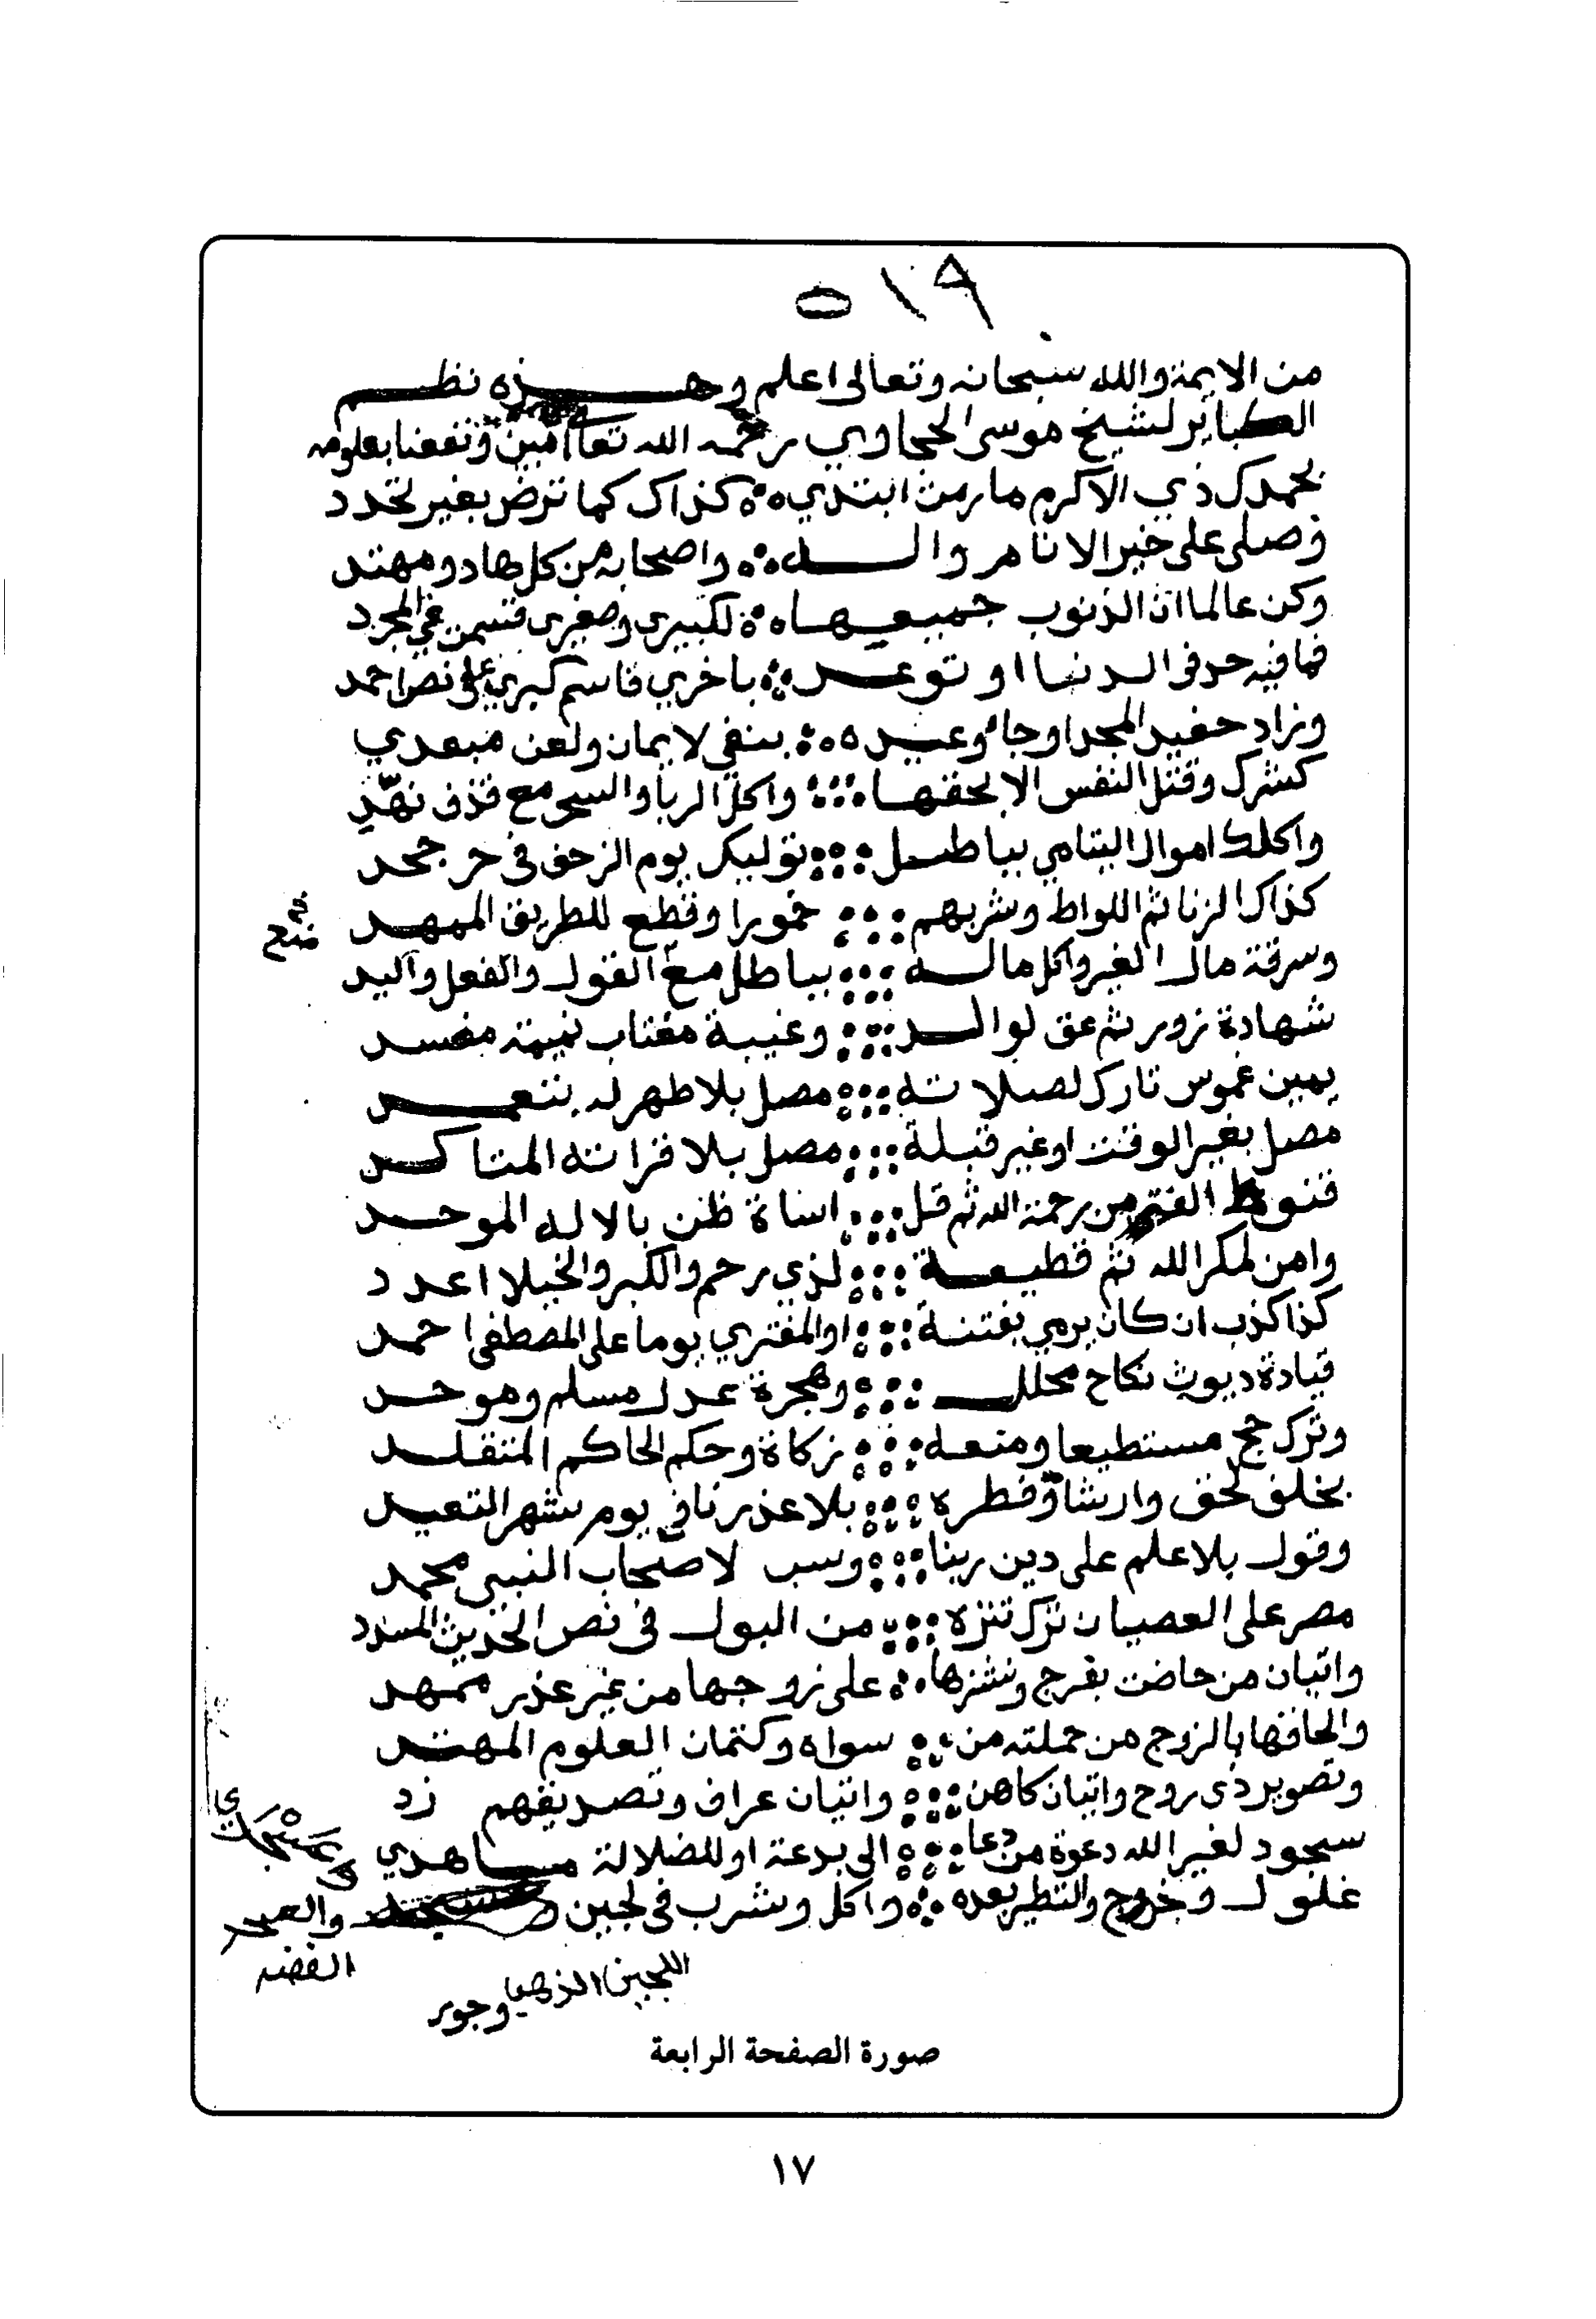 ٥١٩
من الايمة والله سبحانه وتعالى اعلم وهذه نظم
الكبائر لشيخ موسى الحجاوي رحمه الله تعالى امين ونفعنا بعلومه
بحمدك ذي الاكرم مارمت ابتدي كذاك كما ترض بغير تحدد
وصلى على خير الانام واله واصحابه من كل هاد ومهتد
وكن عالما ان الذنوب جميعها لكبيرى وصغيرى قسمن في المجرد
فما فيه حد في الدنيا او توعد باخري فاسم كبيري على نص احمد
وزاد حفيد المجد او جا وعيده بنفي لايمان ولعن مبعدي
كشرك وقتل النفس الا بحقها واكل الربا والسحر مع قذف نهد
واكلك اموال اليتامي بباطل توليك يوم الزحف في حر جحد
كذاك الزنا ثم اللواط وشربهم خمورا وقطع للطريق الممهد
وسرقة مال الغير واكل ماله بباطل مع القول والفعل واليد
شهادة زور ثم عق لوالد وغيبة مغتاب نميمة مفسد
يمين غموس تارك لصلاته مصل بلا طهر له بتعمد
مصل بغير الوقت او غير قبلة مصل بلا قراته المتاكد
قنوط الفتى من رحمة الله ثم قل اساة ظن بالاله الموحد
وامن لمكر الله ثم قطيعة لذي رحم والكبر والخيلا اعدد
كذا كذب ان كان يرمي بفتنة او المفتري يوما على المصطفى احمد
قيادة ديوث نكاح محلل وهجرة عدل مسلم وموحد
وترك حج مستطيعا ومنعه زكاة وحكم الحاكم المتقلد
بخلف لحق وارتشا وفطره بلا عذرنا في يوم شهر التعبد
وقول بلا علم على دين ربنا وسب لاصحاب النبي محمد
مصر على العصيان ترك تنزه من البول في نص الحديث المسدد
واتيان من حاضت بفرج ونشزها على زوجها من غير عذر ممهد
والحاقها بالزوج من حملته من سواه وكتمان العلوم المهتد
وتصوير ذى روح واتيان كاهن واتيان عراف وتصديقهم زد
سجود لغير الله دعوة من دعا الى بدعة او للضلالة ماهدي
غلول و والتطير بعده واكل وشرب في لجين والعسجد
اللجين الذهب الفضه
وجور
صورة الصفحة الرابعة
١٧